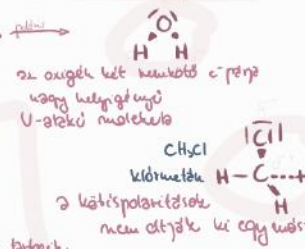 O
H H
az oxigén két nemkötő e⁻párja
nagy helyigényű
V-alakú molekula
CH₃Cl
klórmetán
Cl
H-C---H
H
a kötéspolaritások
nem oltják ki egymást